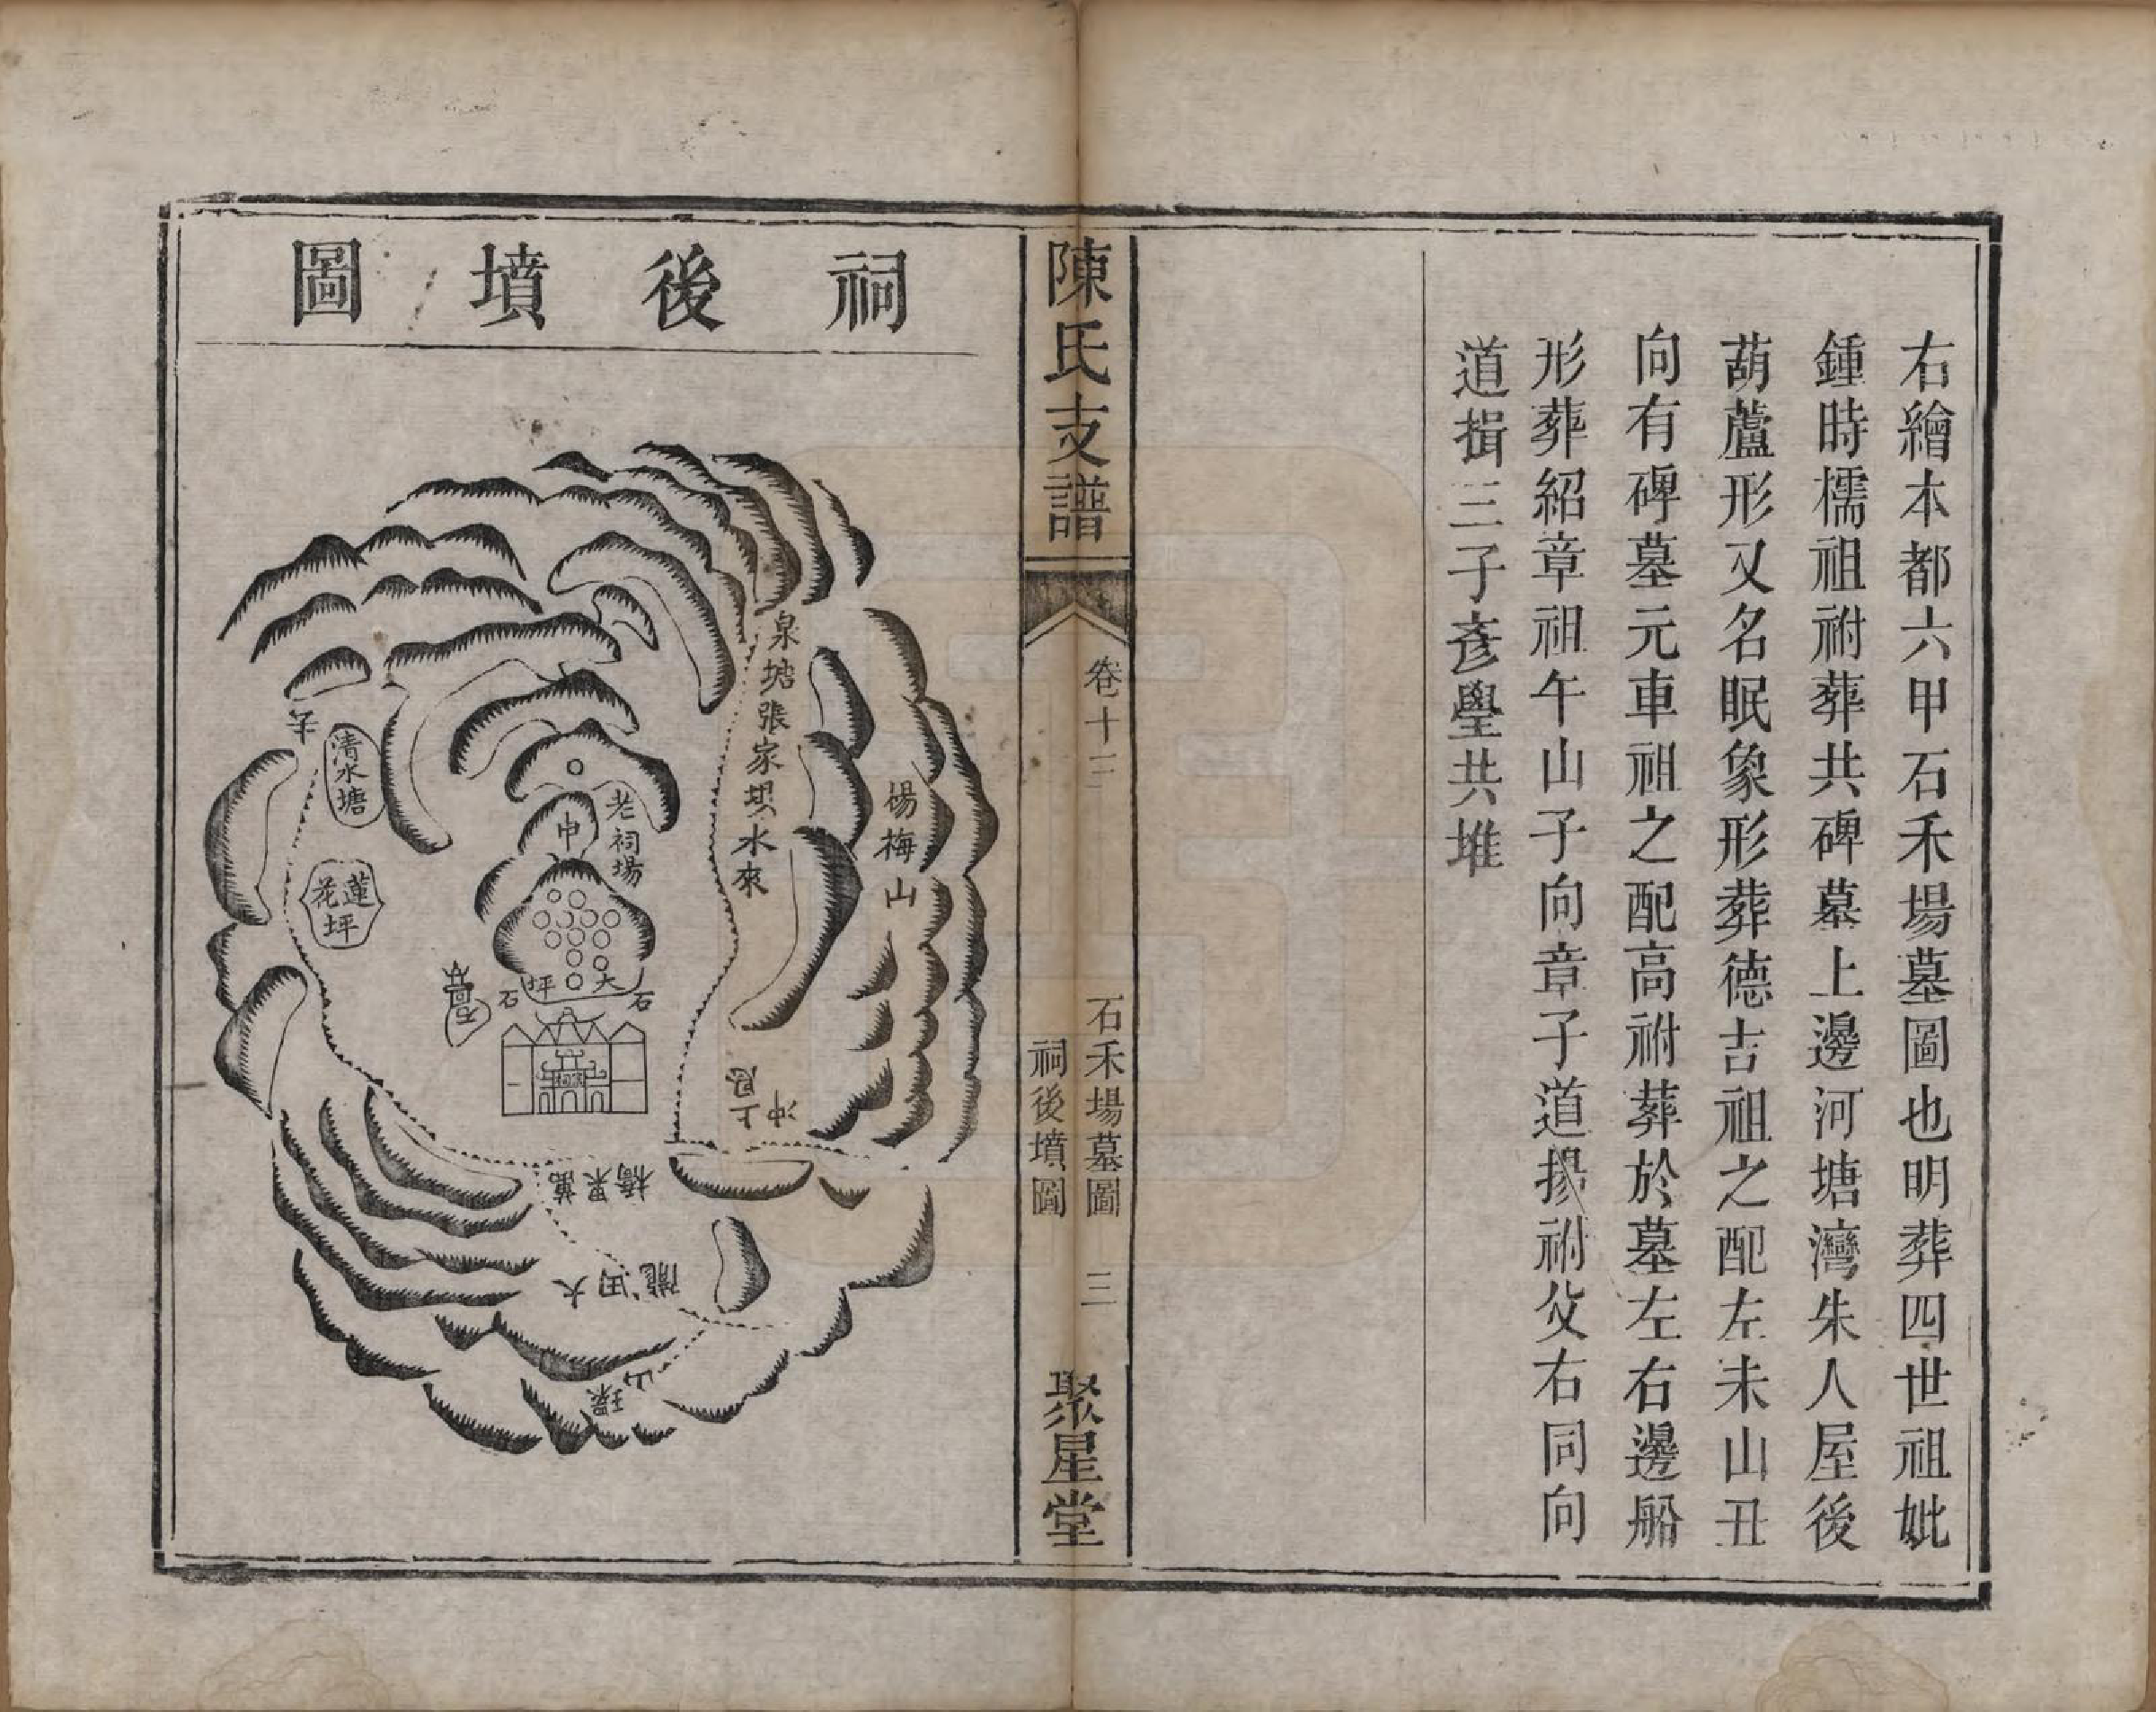 右繪本都六甲石禾場墓圖也明葬四世祖妣
鍾時檽祖祔葬共碑墓上邊河塘灣朱人屋後
葫蘆形又名眠象形葬德吉祖之配左未山丑
向有碑墓元車祖之配高祔葬於墓左右邊船
形葬紹章祖午山子向章子道揚祔父右同向
道揖三子彥壆共堆
陳氏支譜
卷十三
石禾場墓圖
祠後墳圖
三
聚星堂
祠後墳圖
泉塘張家垻水來
楊梅山
老祠場
中
清水塘
蓮花坪
大坪
石
石
冲上
萬杲橋
大田隴
山